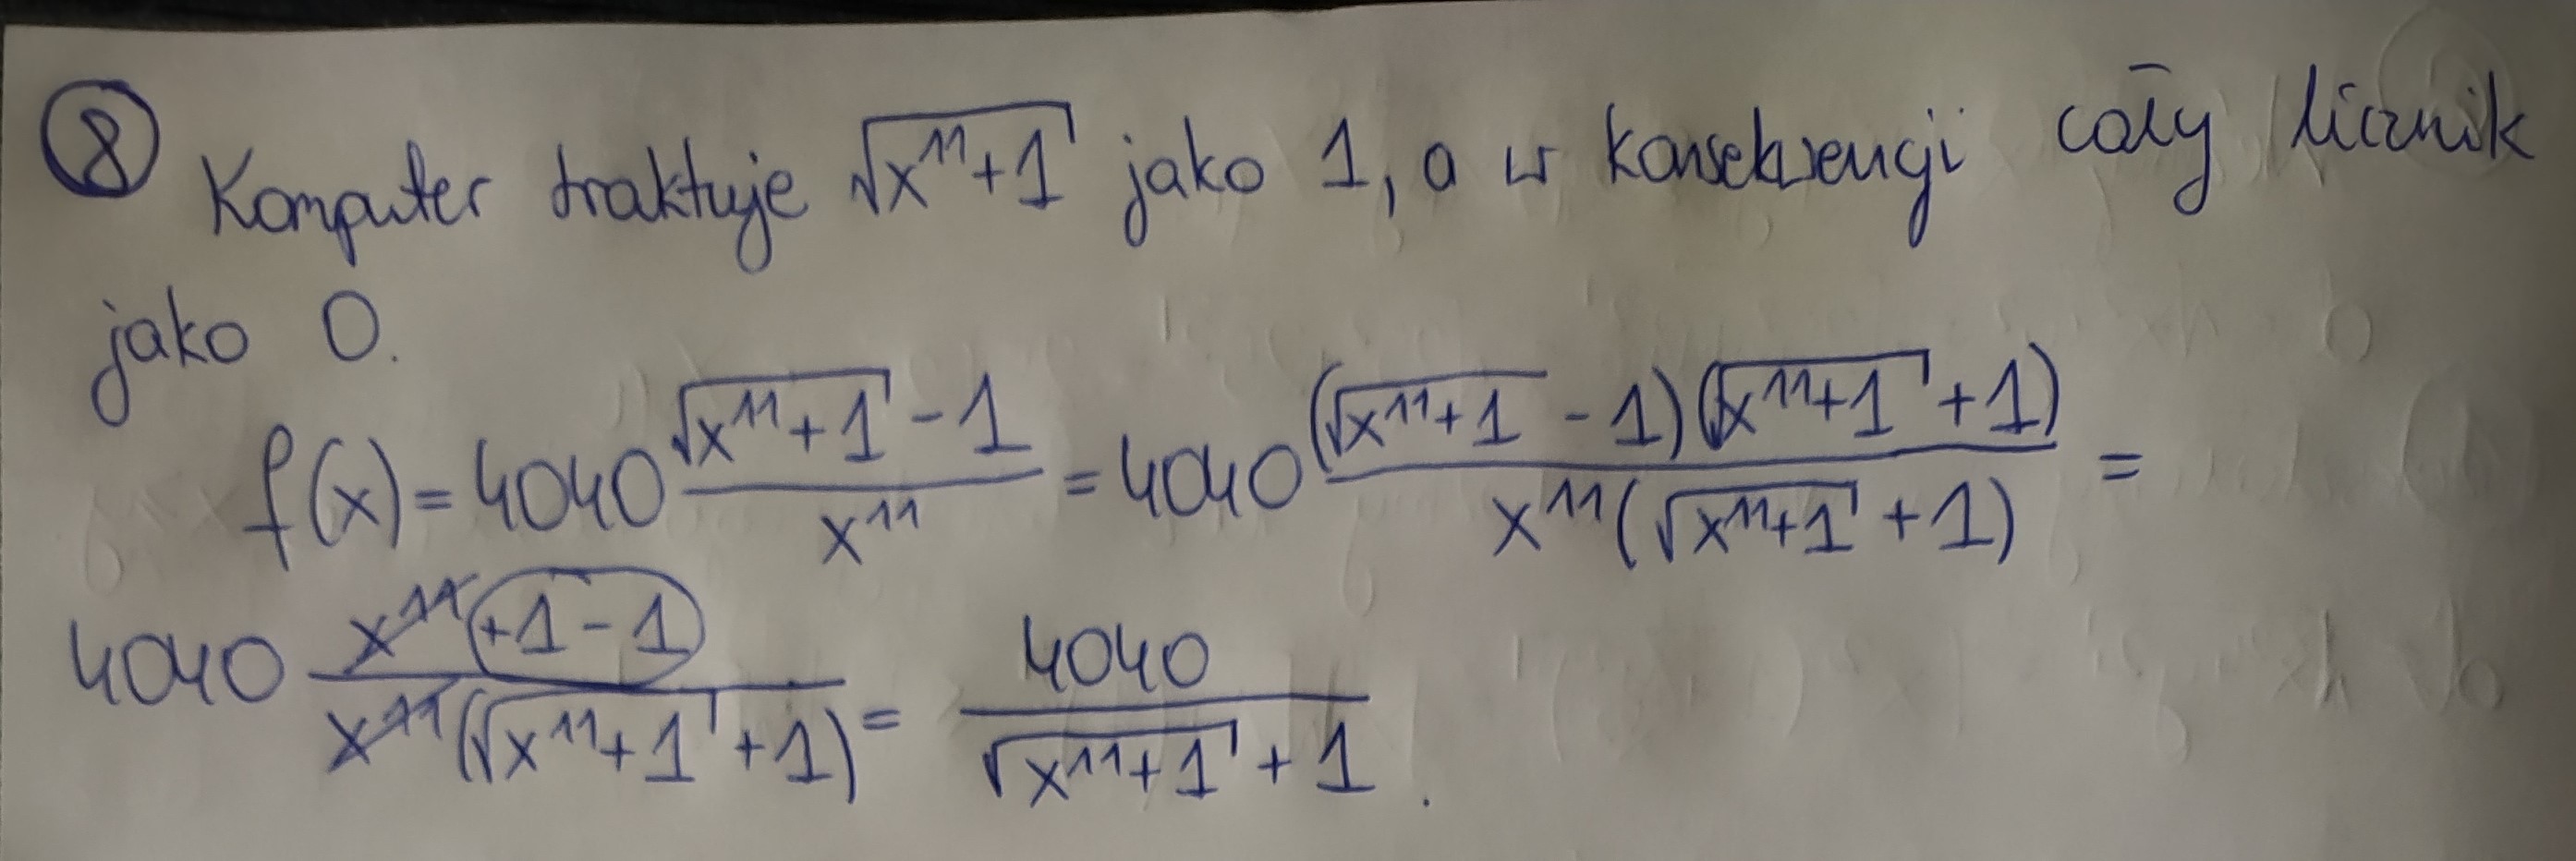 ⑧ Komputer traktuje √(x¹¹+1) jako 1, a w konsekwencji cały licznik
jako 0.
f(x) = 4040 (√(x¹¹+1) - 1)/x¹¹ = 4040 ((√(x¹¹+1) - 1)(√(x¹¹+1) + 1))/(x¹¹(√(x¹¹+1) + 1)) =
4040 (x¹¹+1-1)/(x¹¹(√(x¹¹+1) + 1)) = 4040/(√(x¹¹+1) + 1).